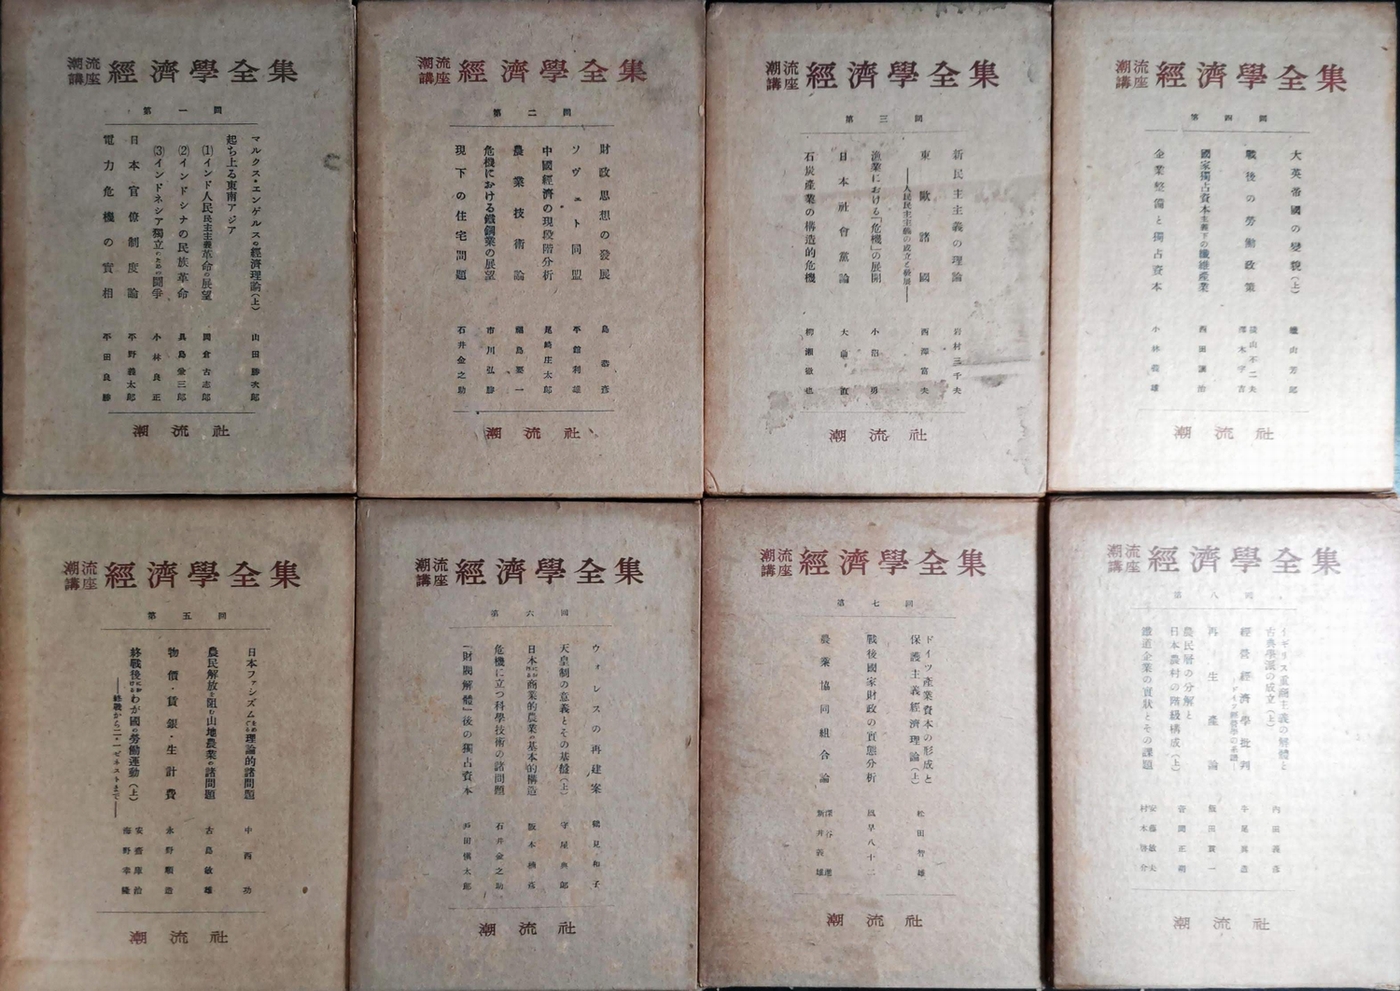 潮流講座 經濟學全集
第一回
マルクス・エンゲルスの經濟理論(上) 山田勝次郎
起ち上る東南アジア
(1)インド人民民主主義革命の展望 岡倉古志郎
(2)インドシナの民族革命 具島兼三郎
(3)インドネシア獨立のための鬪爭 小林良正
日本官僚制度論 平野義太郎
電力危機の實相 平田良勝
潮流社
潮流講座 經濟學全集
第二回
財政思想の發展 島恭彦
ソヴェト同盟 平館利雄
中國經濟の現段階分析 尾崎庄太郎
農業技術論 福島要一
危機における鐵鋼業の展望 市川弘勝
現下の住宅問題 石井金之助
潮流社
潮流講座 經濟學全集
第三回
新民主主義の理論 岩村三千夫
東歐諸國 西澤富夫
――人民民主主義の成立と發展――
漁業における「危機」の展開 小沼勇
日本社會黨論 大山直
石炭産業の構造的危機 柳瀬徹也
潮流社
潮流講座 經濟學全集
第四回
大英帝國の變貌(上) 芳郎
戰後の勞働政策
國家獨占資本主義下の纖維産業
企業整備と獨占資本 小林義雄
潮流社
潮流講座 經濟學全集
第五回
日本ファシズムをめぐる理論的諸問題 中西功
農民解放を阻む山地農業の諸問題 古島敏雄
物價・賃銀・生計費 永野順造
終戰後におけるわが國の勞働運動(上) 安齋庫治 海野幸隆
――終戰から二・一ゼネストまで――
潮流社
潮流講座 經濟學全集
第六回
ウォレスの再建案 鶴見和子
天皇制の意義とその基盤(上) 守屋典郎
日本における商業的農業の基本的構造 阪本楠彦
危機に立つ科學技術の諸問題 石井金之助
「財閥解體」後の獨占資本 戸田愼太郎
潮流社
潮流講座 經濟學全集
第七回
ドイツ産業資本の形成と
保護主義經濟理論(上) 松田智雄
戰後國家財政の實態分析 風早八十二
農業協同組合論 深谷進 新井義雄
潮流社
潮流講座 經濟學全集
第八回
イギリス重商主義の解體と
古典學派の成立(上) 内田義彦
經營經濟學批判
――ドイツ經營學の系譜――
再生産論 飯田貫一
農民層の分解と
日本農村の階級構成(上) 菅間正朔
鐵道企業の實狀とその課題 安藤敏夫 村本啓介
潮流社